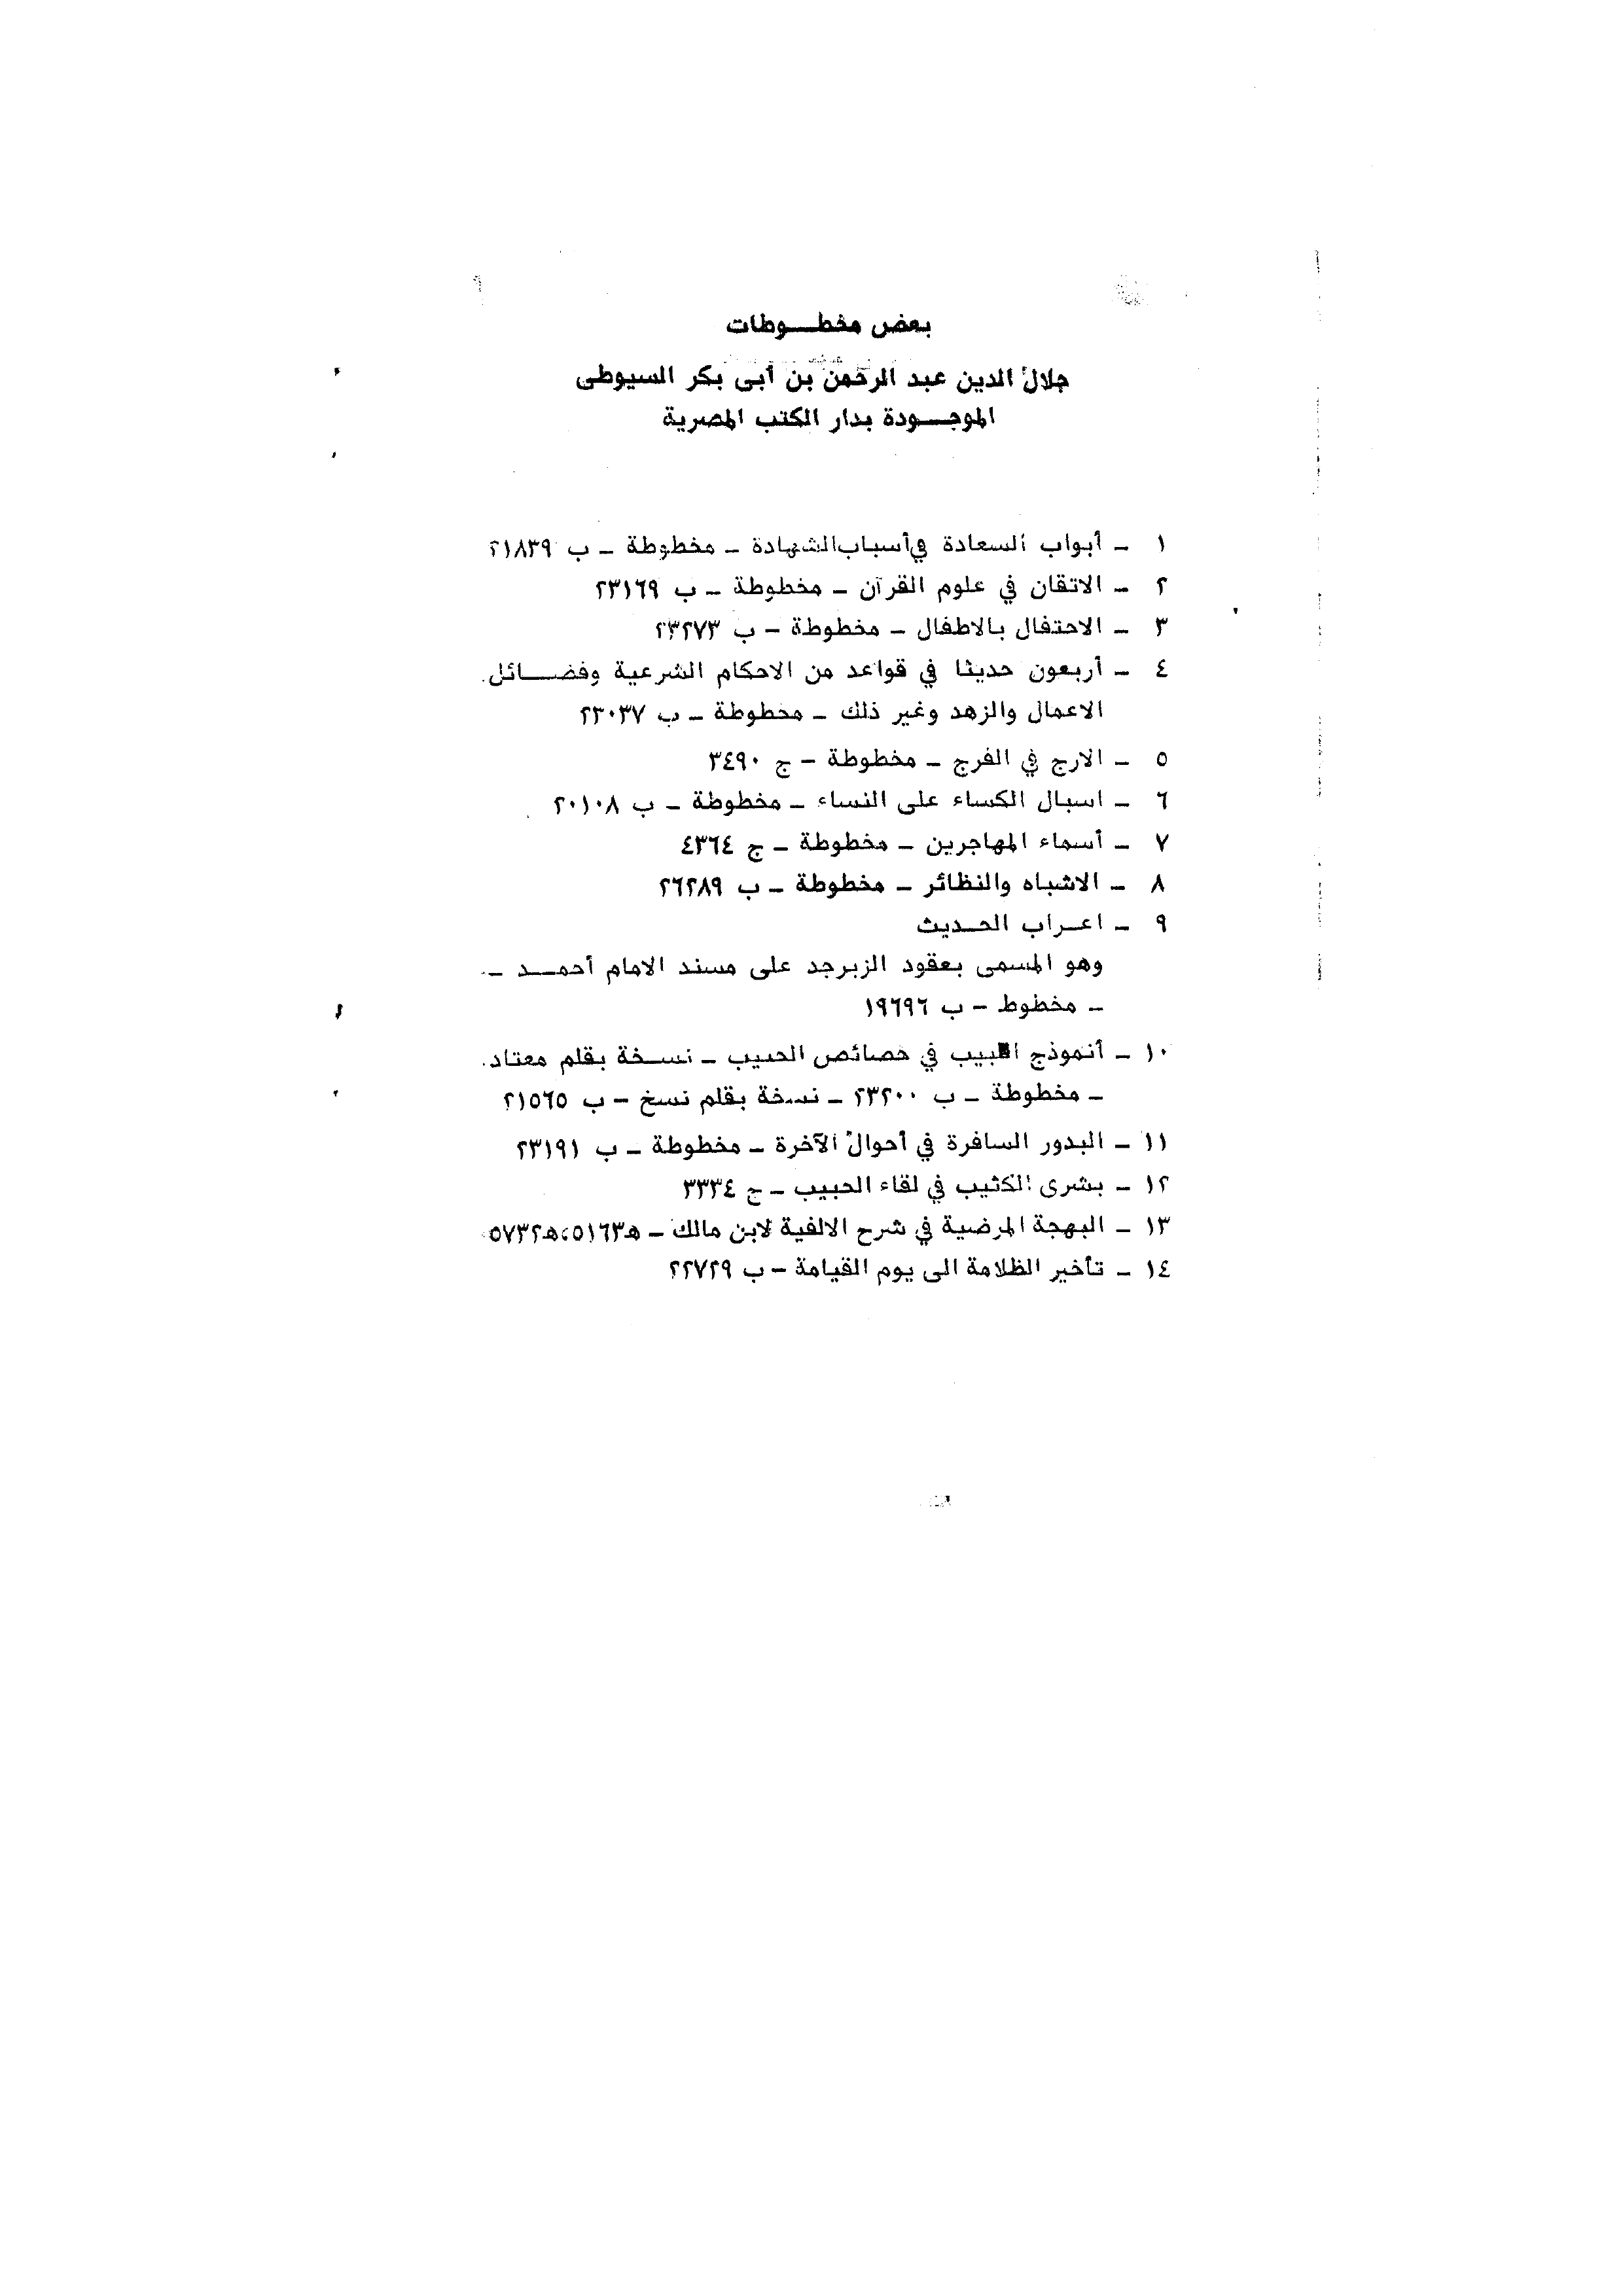 بعض مخطــوطات
جلال الدين عبد الرحمن بن أبى بكر السيوطى
الموجــودة بدار الكتب المصرية
١ ــ أبواب السعادة في أسباب الشهادة ــ مخطوطة ــ ب ٢١٨٣٩
٢ ــ الاتقان في علوم القرآن ــ مخطوطة ــ ب ٢٣١٦٩
٣ ــ الاحتفال بالاطفال ــ مخطوطة ــ ب ٢٣٢٧٣
٤ ــ أربعون حديثا في قواعد من الاحكام الشرعية وفضــائل
الاعمال والزهد وغير ذلك ــ مخطوطة ــ ب ٢٣٠٣٧
٥ ــ الارج في الفرج ــ مخطوطة ــ ج ٣٤٩٠
٦ ــ اسبال الكساء على النساء ــ مخطوطة ــ ب ٢٠١٠٨
٧ ــ أسماء المهاجرين ــ مخطوطة ــ ج ٤٣٦٤
٨ ــ الاشباه والنظائر ــ مخطوطة ــ ب ٢٦٢٨٩
٩ ــ اعــراب الحــديث
وهو المسمى بعقود الزبرجد على مسند الامام أحمــد ــ
ــ مخطوط ــ ب ١٩٦٩٦
١٠ ــ أنموذج اللبيب في خصائص الحبيب ــ نســخة بقلم معتاد
ــ مخطوطة ــ ب ٢٣٢٠٠ ــ نسخة بقلم نسخ ــ ب ٢١٥٦٥
١١ ــ البدور السافرة في أحوال الآخرة ــ مخطوطة ــ ب ٢٣١٩١
١٢ ــ بشرى الكئيب في لقاء الحبيب ــ ج ٣٣٣٤
١٣ ــ البهجة المرضية في شرح الالفية لابن مالك ــ ه‍ ٥١٦٣، ه‍ ٥٧٣٢
١٤ ــ تأخير الظلامة الى يوم القيامة ــ ب ٢٢٧٢٩